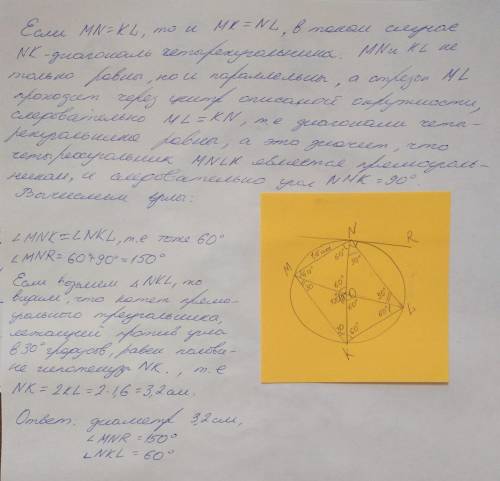 Если MN=KL, то и MK=NL, в таком случае
NK-диагональ четырехугольника. MN и KL не
только равны, но и параллельны, а отрезок ML
проходит через центр описанной окружности,
следовательно ML=KN, т.е диагонали четы-
рехугольника равны, а это значит, что
четырехугольник MNLK является прямоуголь-
ником, и следовательно угол NMK=90°.
Вычислим углы:
∠MNK=∠NKL, т.е тоже 60°
∠MNR=60°+90°=150°
Если возьмем △NKL, то
видим, что катет прямо-
угольного треугольника,
лежащий против угла
в 30° градусов, равен полови-
не гипотенузы NK., т.е
NK=2KL=2·1,6=3,2 см.
Ответ: диаметр 3,2 см,
∠MNR=150°
∠NKL=60°
N
R
M
60°
30°
60°
O
60°
30°
60°
L
30
60°
K